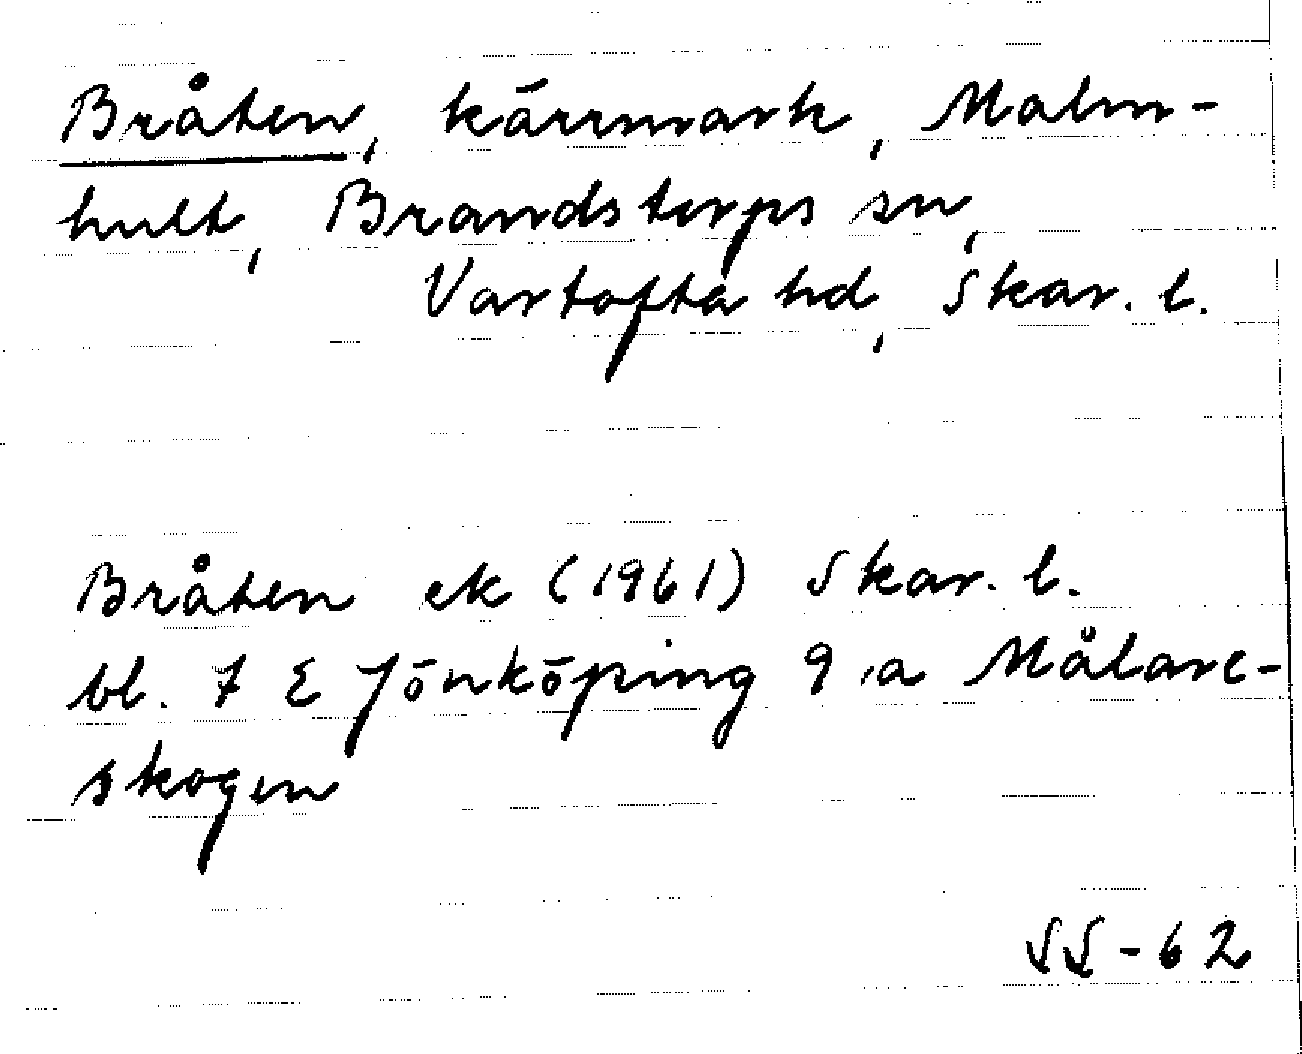 Bråten, kärrmark, Malm-
hult, Brandstorps sn,
Vartofta hd, Skar. l.
Bråten ek (1961) Skar. l.
bl. 7 E Jönköping 9 a Målare-
skogen
SS-62